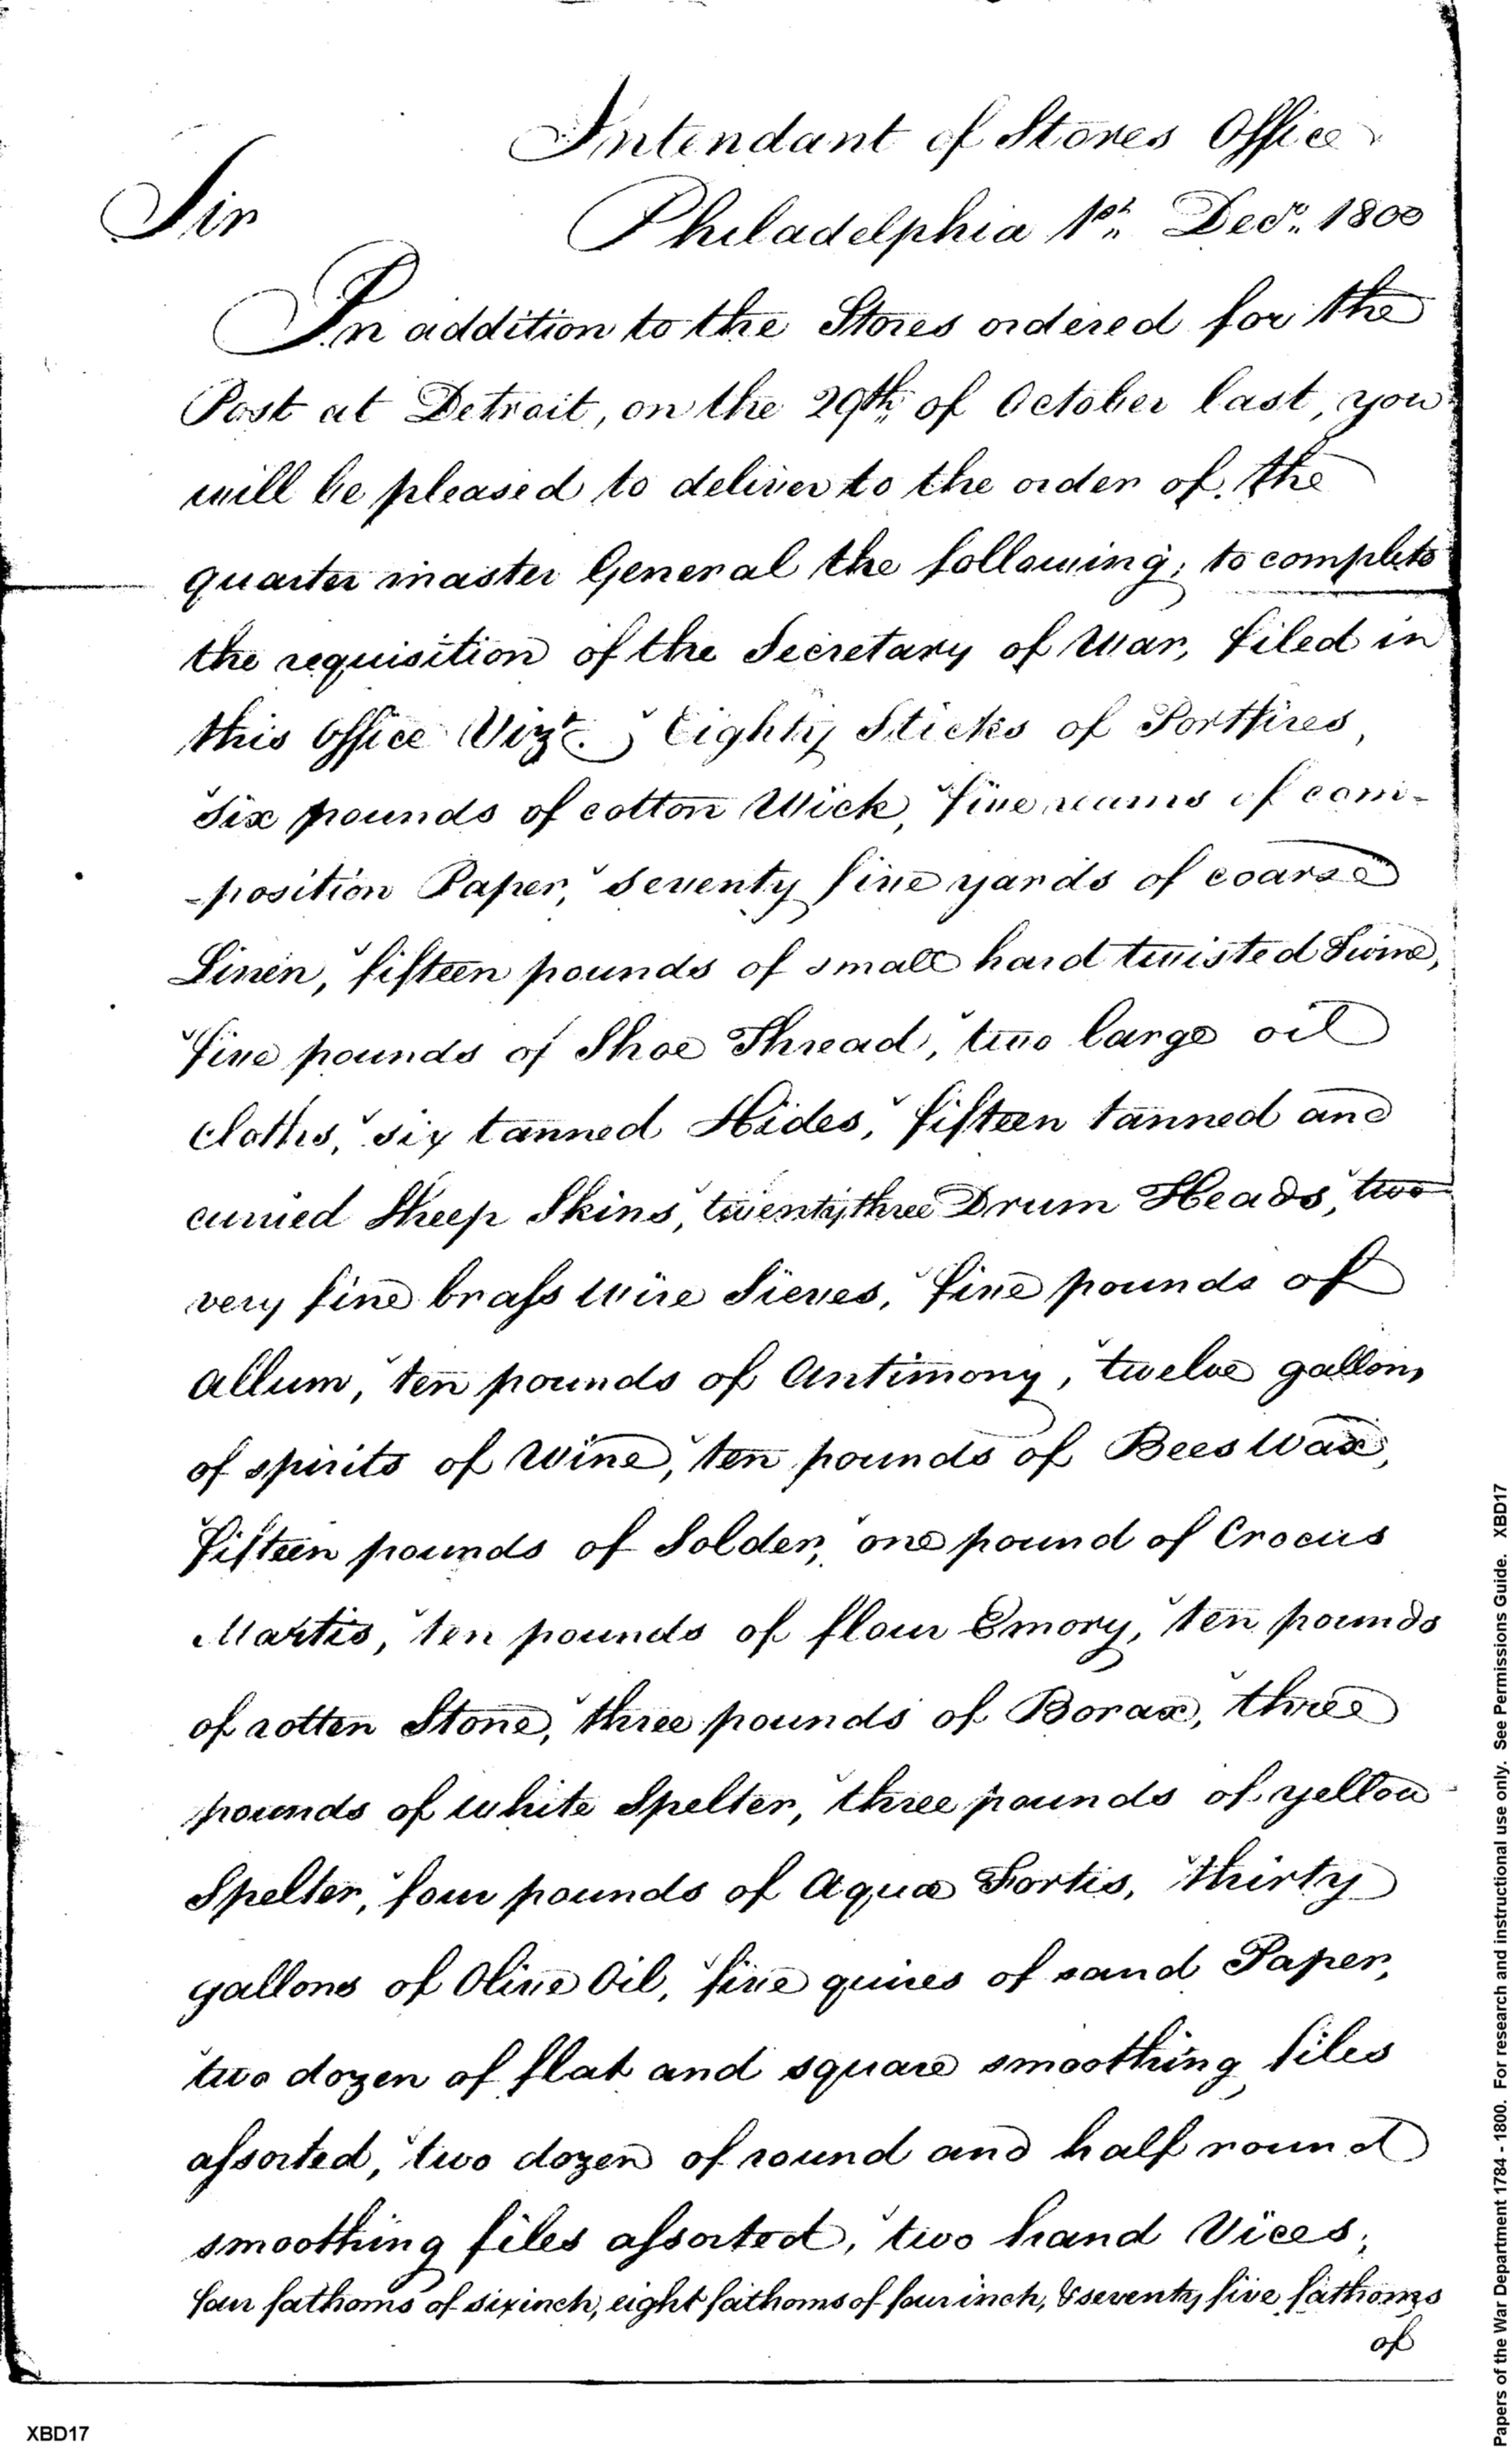 Intendant of Stores Office
Sir
Philadelphia 1st. Decr. 1800
In addition to the Stores ordered for the
Post at Detroit, on the 29th, of October last, you
will be pleased to deliver to the order of the
quarter master General the following, to complete
the requisition of the Secretary of War, filed in
this Office Vizt. Eighty Sticks of Portfires,
six pounds of cotton Wick, five reams of com-
-position Paper, seventy five yards of coarse
Linen, fifteen pounds of small hard twisted Twine,
five pounds of Shoe Thread, two large oil
cloths, six tanned Hides, fifteen tanned and
curried Sheep Skins, twenty three Drum Heads, two
very fine brass wire Sieves, five pounds of
Allum, ten pounds of Antimony, twelve gallons
of spirits of Wine, ten pounds of Bees Wax,
fifteen pounds of Solder, one pound of Crocus
Martis, ten pounds of flour Emory, ten pounds
of rotten Stone, three pounds of Borax, three
pounds of white Spelter, three pounds of yellow
Spelter, four pounds of Aqua Fortis, thirty
gallons of Olive Oil, five quires of sand Paper,
two dozen of flat and square smoothing files
assorted, two dozen of round and half round
smoothing files assorted, two hand Vices,
four fathoms of six inch, eight fathoms of four inch, & seventy five fathoms
of
XBD17
Papers of the War Department 1784 - 1800. For research and instructional use only. See Permissions Guide. XBD17